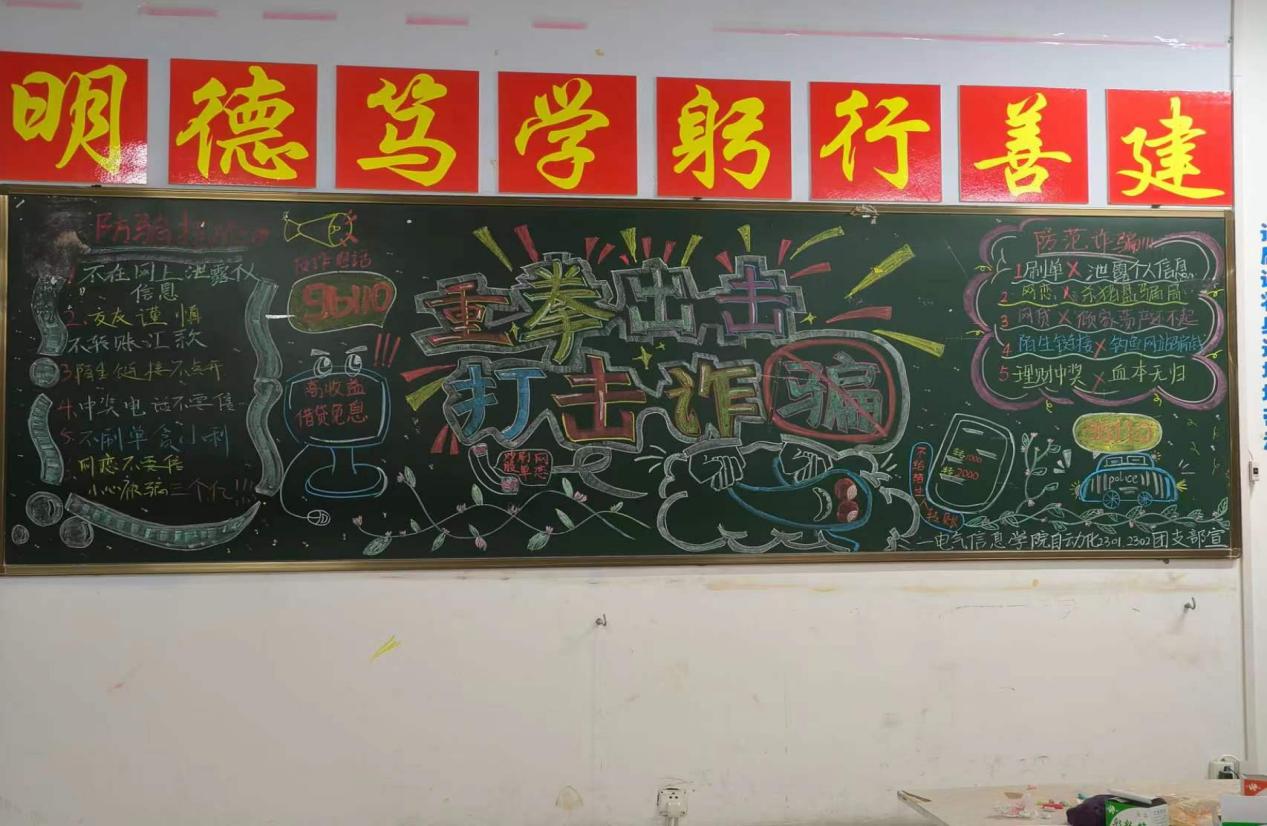 明德笃学躬行善建
防骗
不在网上泄露仅
信息
2.交友谨慎
不转账汇款
3.陌生链接不点开
4.中奖电话不要信
5.不刷单贪小利
网恋不要信
小心被骗三个亿!!!
96110
高收益
借贷免息
!!!
重拳出击
打击诈骗
网恋
刷单
不给陌生人转账
转1000
转2000
防范诈骗!!!
1 刷单 X 泄露个人信息
2 网恋 X 杀猪盘骗局
3 网贷 X 倾家荡产还不起
4 陌生链接 X 钓鱼网站骗钱
5 理财中奖 X 血本无归
police
—电气信息学院自动化2301.2302团支部宣